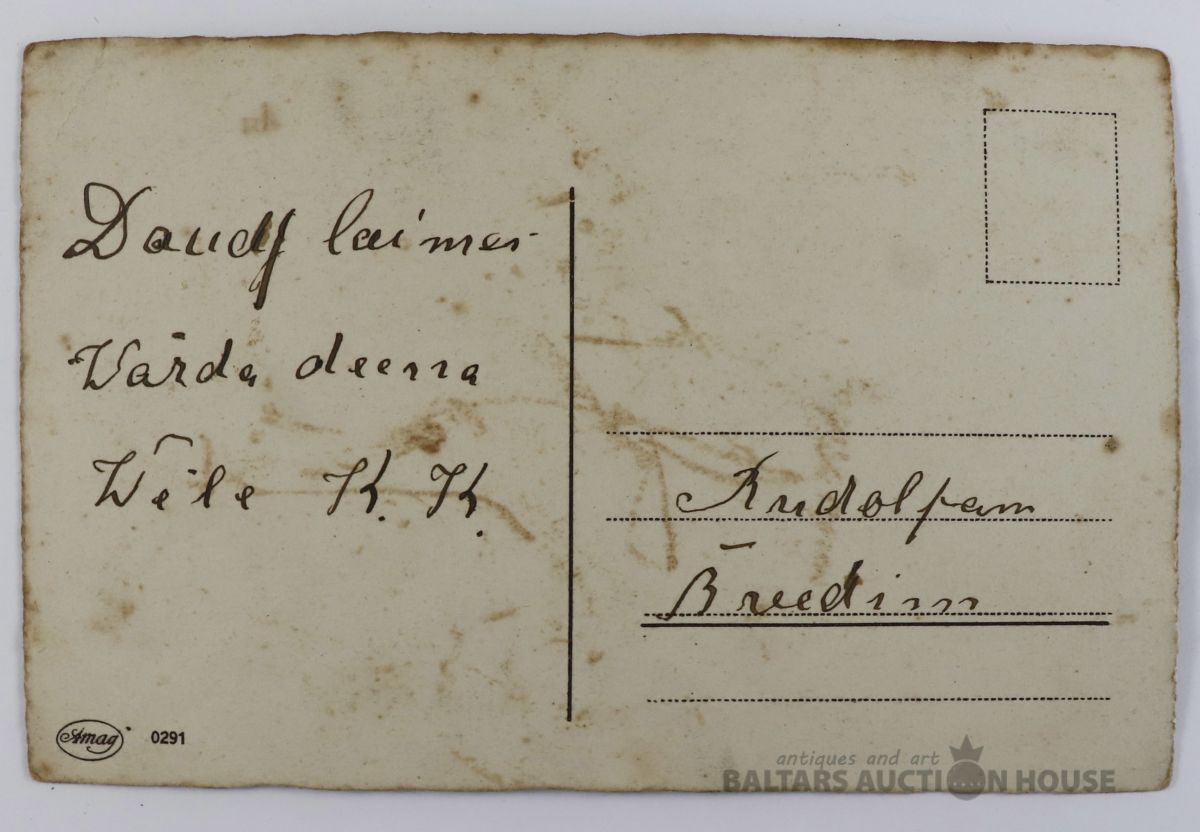 Daudz laimes
Wārda deena
Wēle K. K.
Rudolfam
Breedim
Amag 0291
antiques and art
BALTARS AUCTION HOUSE